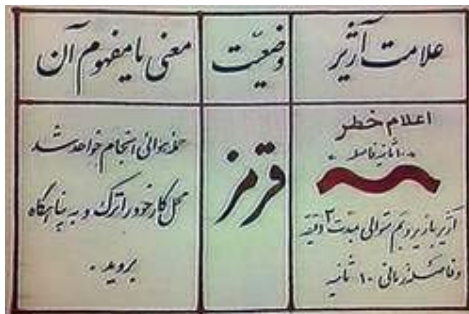 علامت آژیر
وضعیّت
معنی یا مفهوم آن
اعلام خطر
۱۰ ثانیه فاصله
آژیر با زیر و بم متوالی بمدت ۳ دقیقه
و فاصله زمانی ۱۰ ثانیه
قرمز
حمله هوائی انجام خواهد شد
محل کار خود را ترک و به پناهگاه
بروید .